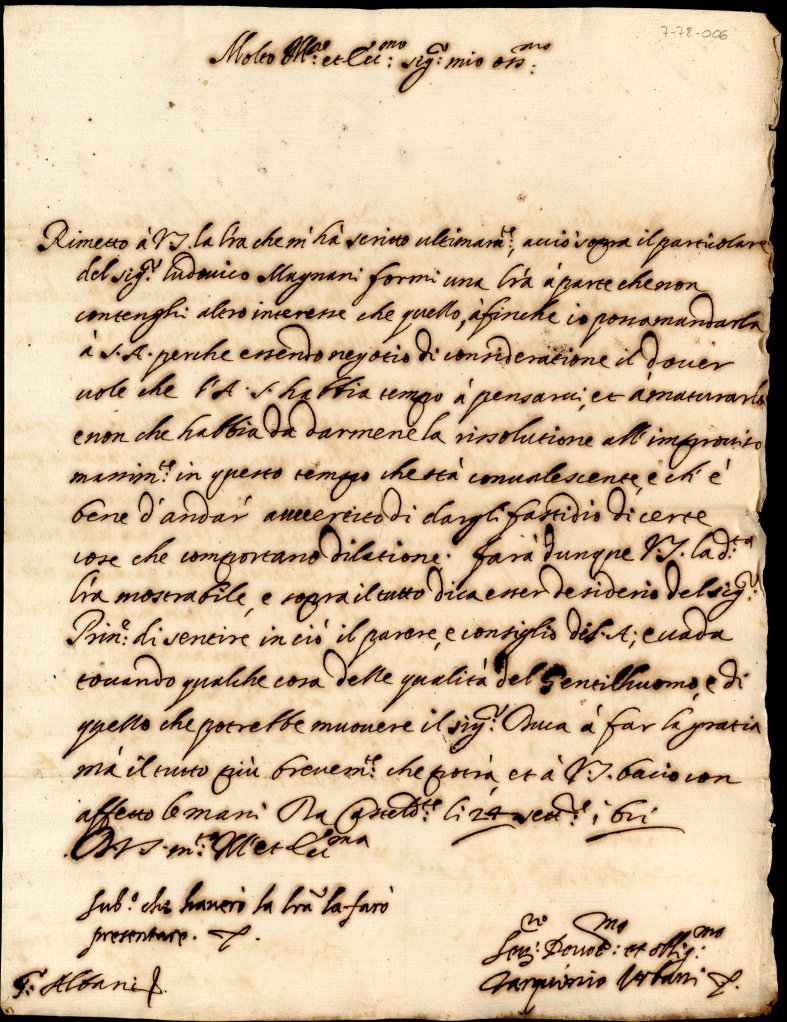 7-78-006
Molto Ill.re et Ecc.mo sig.r mio oss.mo
Rimetto à V.S. la lr̃a che m'hà scritto ultimam.te, acciò sopra il particolare
del sig.r Ludovico Magnani formi una lr̃a à parte che non
contenghi altro interesse che quello, à finche io possa mandarla
à S.A. perche essendo negotio di consideratione il dover
vole che l'A.S. habbia tempo à pensarvi, et à maturarlo
e non che habbia da darmene la rissolutione all'improviso
massim.te in questo tempo che stà convalescente, e ch'è
bene d'andar avvertito di dargli fastidio di certe
cose che comportano dilatione. farà dunque V.S. la d.ta
lr̃a mostrabile, e sopra il tutto dica esser desiderio del sig.r
Prin.e di sentire in ciò il parere, e consiglio di S.A., e vada
toccando qualche cosa delle qualità del Gentilhuomo, e di
quello che potrebbe muovere il sig.r Duca à far la gratia
mà il tutto più brevem.te che potrà et à V.S. bacio con
affetto le mani Da Casteld.te li 24 sett.re i6ii
Di V.S. m.to Ill.e et Ecc.ma
Sub.o che haverò la lr̃a la farò
presentare.
Ser.re Devot.mo et oblig.mo
Tarquinio Urbani
S.r Albani